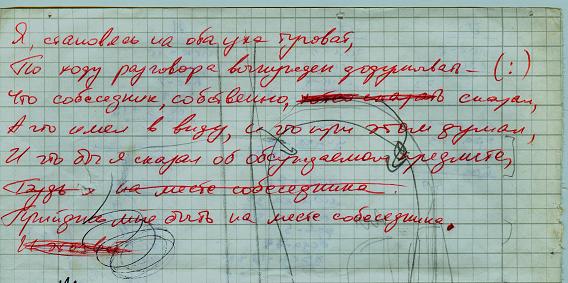 Я, становясь на оба уха туговат,
По ходу разговора вынужден додумывать – (:)
Что собеседник, собственно, сказал,
А что имел в виду, и что при этом думал,
И что бы я сказал об обсуждаемом предмете,
Будь я на месте собеседника.
Приидись мне быть на месте собеседника.